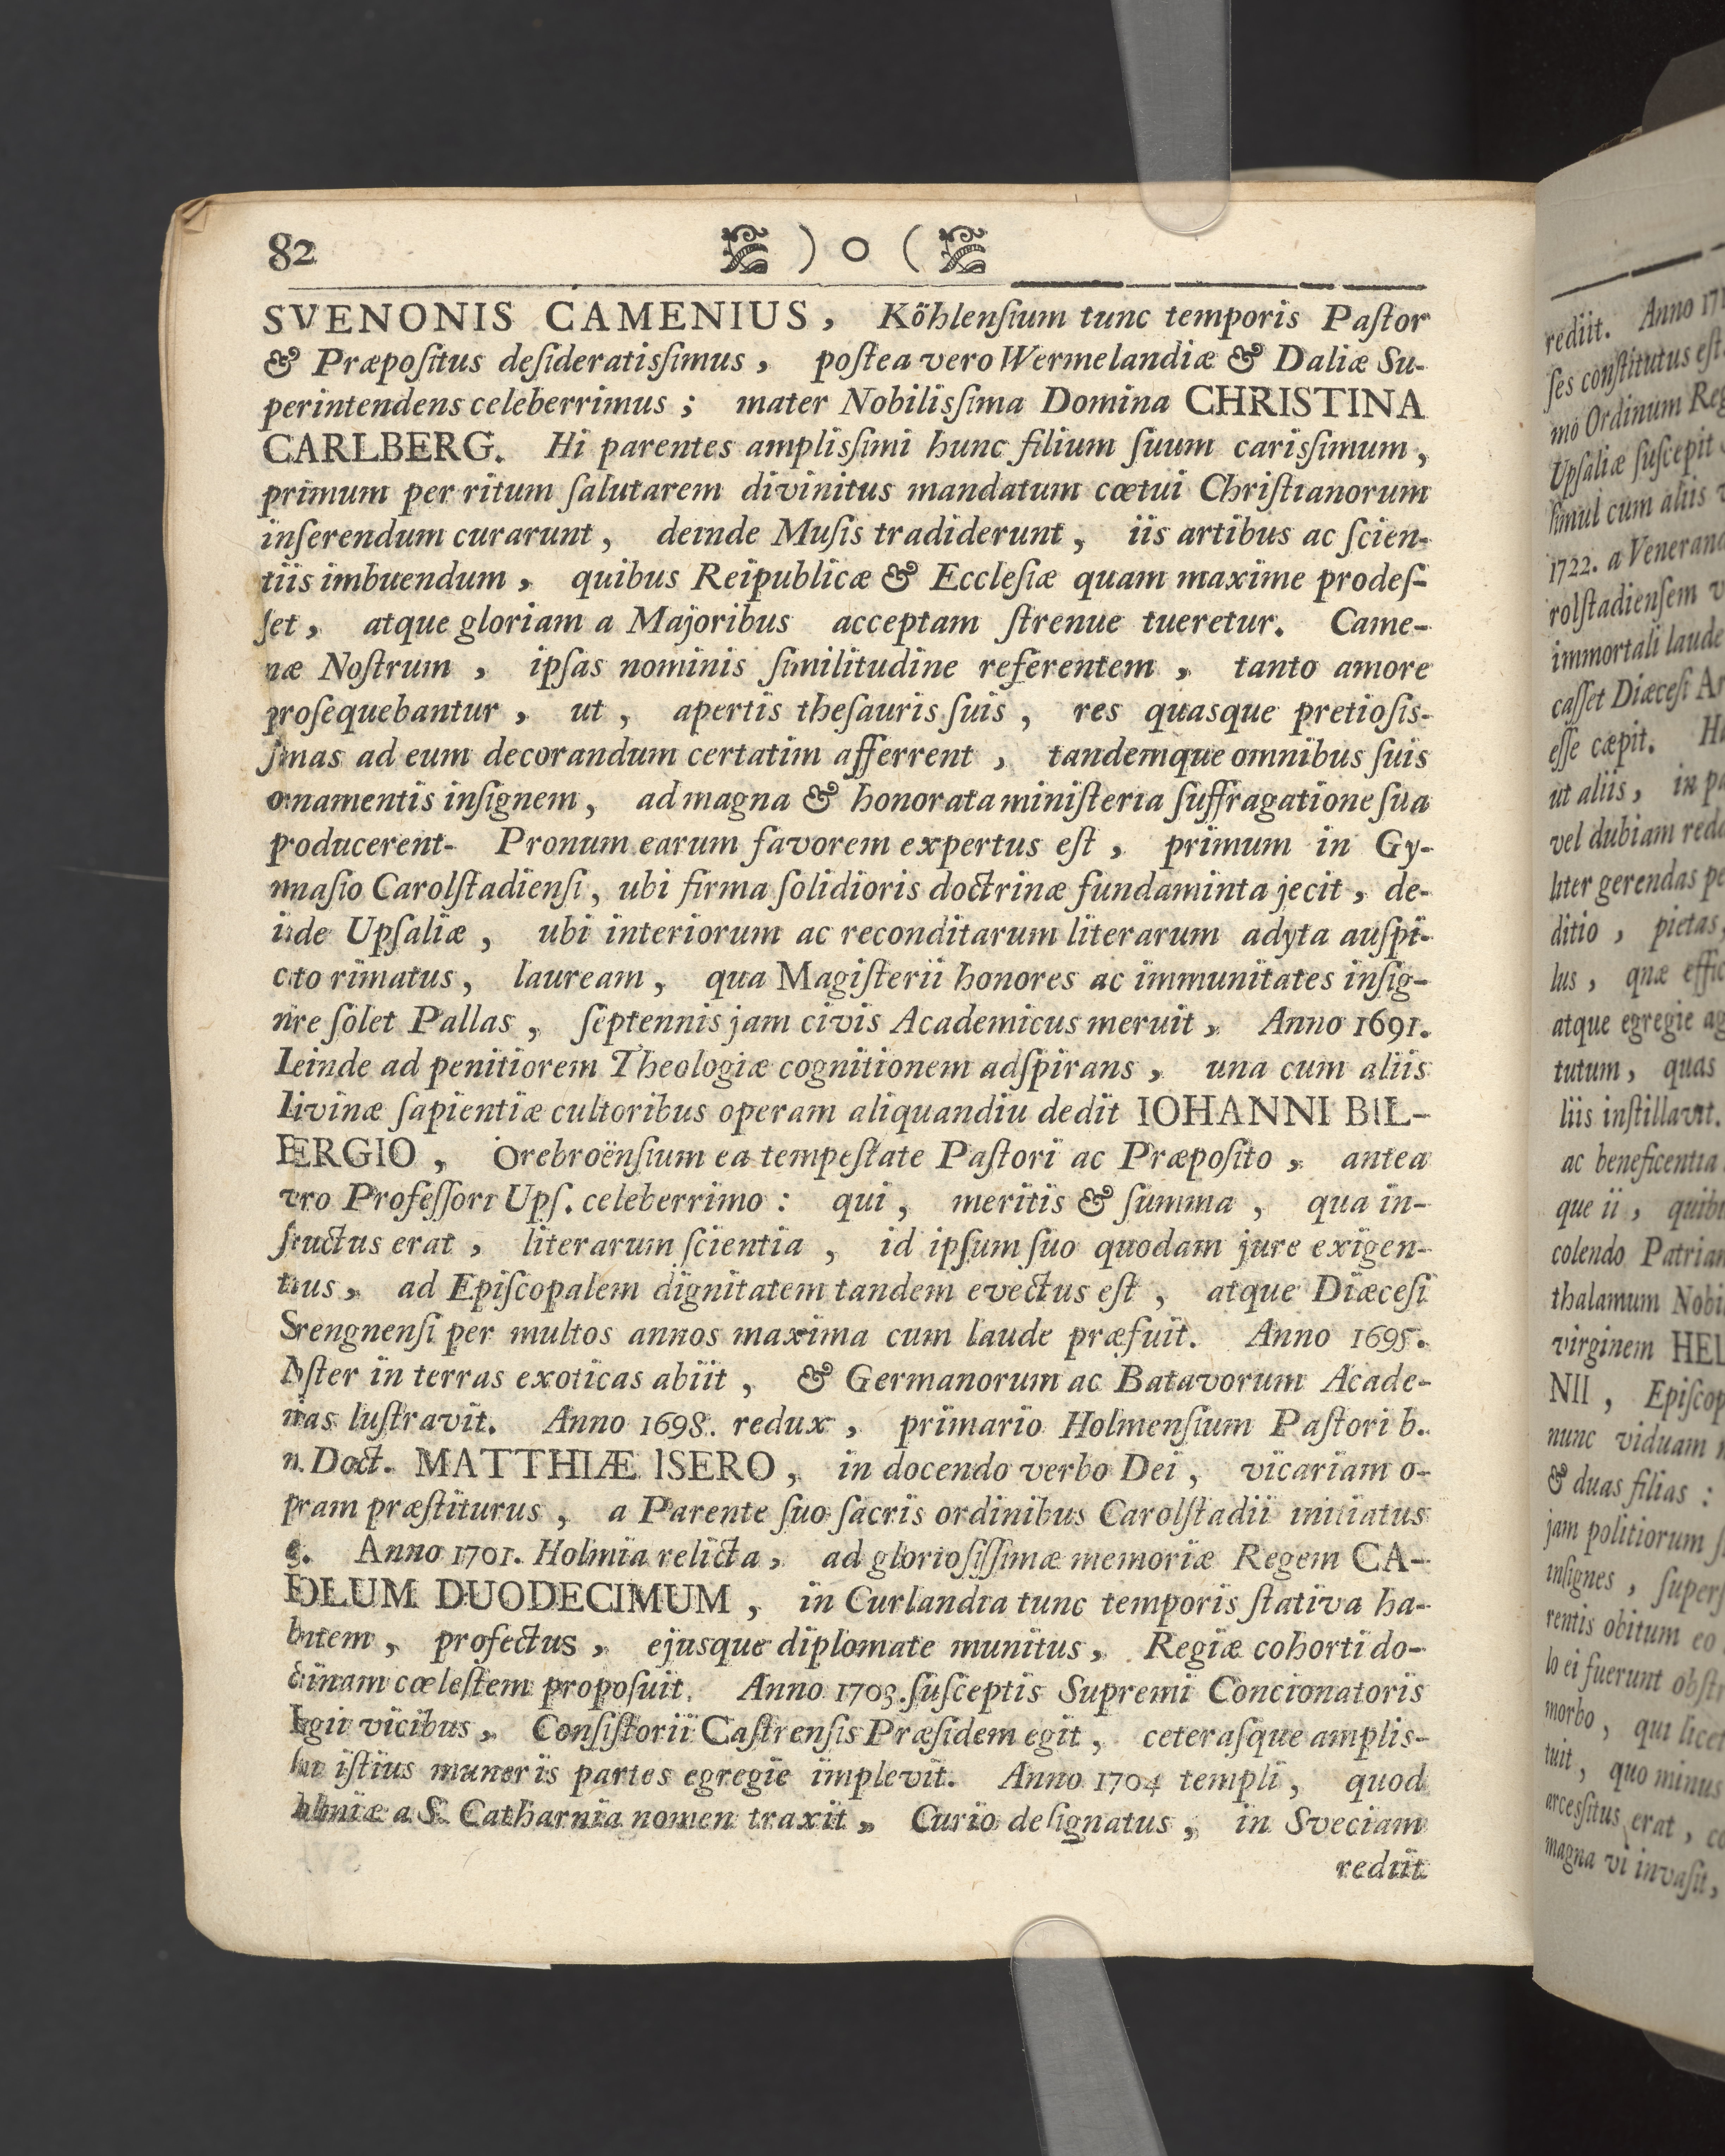 82 ) o (
SVENONIS CAMENIUS, Köhlenſium tunc temporis Paſtor
& Præpoſitus deſideratisſimus, poſtea vero Wermelandiæ & Daliæ Su-
perintendens celeberrimus; mater Nobilisſima Domina CHRISTINA
CARLBERG. Hi parentes amplisſimi hunc filium ſuum carisſimum,
primum per ritum ſalutarem divinitus mandatum cœtui Chriſtianorum
inſerendum curarunt, deinde Muſis tradiderunt, iis artibus ac ſcien-
tiis imbuendum, quibus Reipublicæ & Eccleſiæ quam maxime prodeſ-
ſet, atque gloriam a Majoribus acceptam ſtrenue tueretur. Came-
næ Noſtrum, ipſas nominis ſimilitudine referentem, tanto amore
proſequebantur, ut, apertis theſauris ſuis, res quasque pretioſis-
ſimas ad eum decorandum certatim afferrent, tandemque omnibus ſuis
ornamentis inſignem, ad magna & honorata miniſteria ſuffragatione ſua
producerent- Pronum earum favorem expertus eſt, primum in Gy-
mnaſio Carolſtadienſi, ubi firma ſolidioris doctrinæ fundaminta jecit, de-
inde Upſaliæ, ubi interiorum ac reconditarum literarum adyta auſpi-
cato rimatus, lauream, qua Magiſterii honores ac immunitates inſig-
nire ſolet Pallas, ſeptennis jam civis Academicus meruit, Anno 1691.
Deinde ad penitiorem Theologiæ cognitionem adſpirans, una cum aliis
Divinæ ſapientiæ cultoribus operam aliquandiu dedit IOHANNI BIL-
BERGIO, Orebroënſium ea tempeſtate Paſtori ac Præpoſito, antea
vero Profeſſori Upſ. celeberrimo: qui, meritis & ſumma, qua in-
ſtructus erat, literarum ſcientia, id ipſum ſuo quodam jure exigen-
tibus, ad Epiſcopalem dignitatem tandem evectus eſt, atque Diæceſi
Strengnenſi per multos annos maxima cum laude præfuit. Anno 1695.
Noſter in terras exoticas abiit, & Germanorum ac Batavorum Acade-
mias luſtravit. Anno 1698. redux, primario Holmenſium Paſtori b.
m. Doct. MATTHIÆ ISERO, in docendo verbo Dei, vicariam o-
peram præſtiturus, a Parente ſuo ſacris ordinibus Carolſtadii initiatus
Anno 1701. Holmia relicta, ad glorioſiſſimæ memoriæ Regem CA-
ROLUM DUODECIMUM, in Curlandia tunc temporis ſtativa ha-
bentem, profectus, ejusque diplomate munitus, Regiæ cohorti do-
ctrinam cœleſtem propoſuit. Anno 1703. ſuſceptis Supremi Concionatoris
Regii vicibus, Conſiſtorii Caſtrenſis Præſidem egit, ceteraſque amplis-
iſtius muneris partes egregie implevit. Anno 1704 templi, quod
Holmiæ a S. Catharnia nomen traxit, Curio deſignatus, in Sveciam
rediit
rediit. Anno
ſes conſtitutus eſt
mo Ordinum Reg
Upſaliæ ſuſcepit
ſimul cum aliis
1722. a Veneran
rolſtadienſem
immortali laude
caſſet Diæceſi
eſſe cæpit.
ut aliis, in
vel dubiam
liter gerendas
ditio, pietas,
lus, quæ
atque egregie
tutum, quas
liis inſtillavit.
ac beneficentia
que ii,
colendo Patriam
thalamum
virginem HEL
NII, Epiſcop
nunc viduam
& duas filias:
jam politiorum
inſignes,
rentis obitum eo
lo ei fuerunt
morbo, qui licet
tuit, quo minus
arcesſitus erat,
magna vi invaſit,